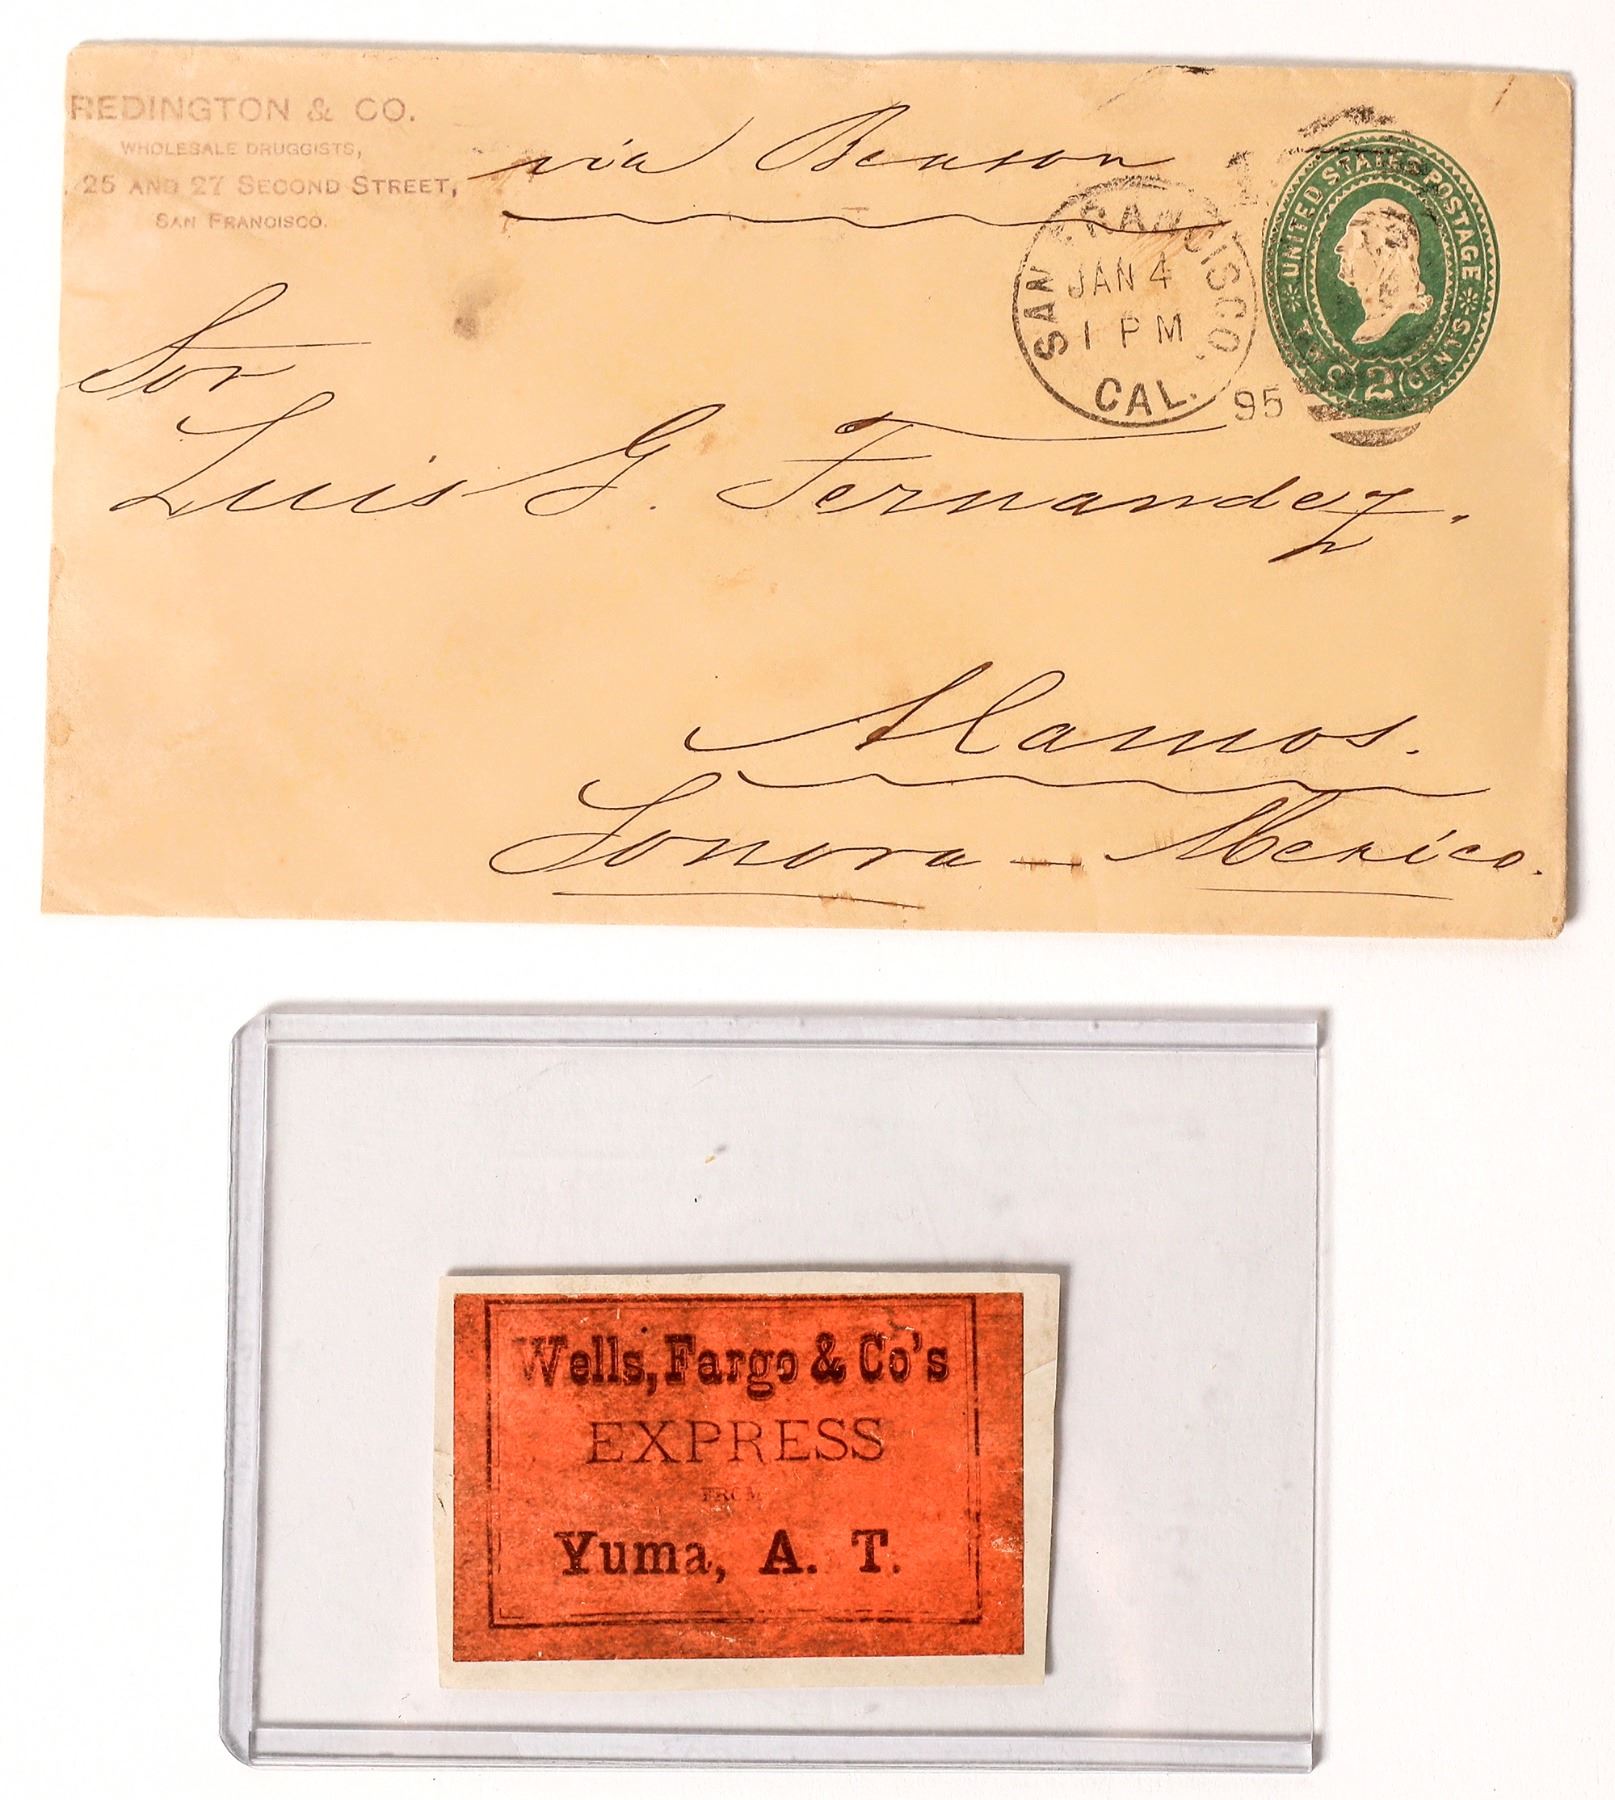 REDINGTON & CO.
WHOLESALE DRUGGISTS,
25 AND 27 SECOND STREET,
SAN FRANCISCO.
via Benson
SAN FRANCISCO,
JAN 4
1 PM
CAL.
95
1
UNITED STATES POSTAGE
TWO 2 CENTS
Sor
Luis G. Fernandez.
Alamos.
Sonora - Mexico.
Wells, Fargo & Co's
EXPRESS
FROM
Yuma, A. T.